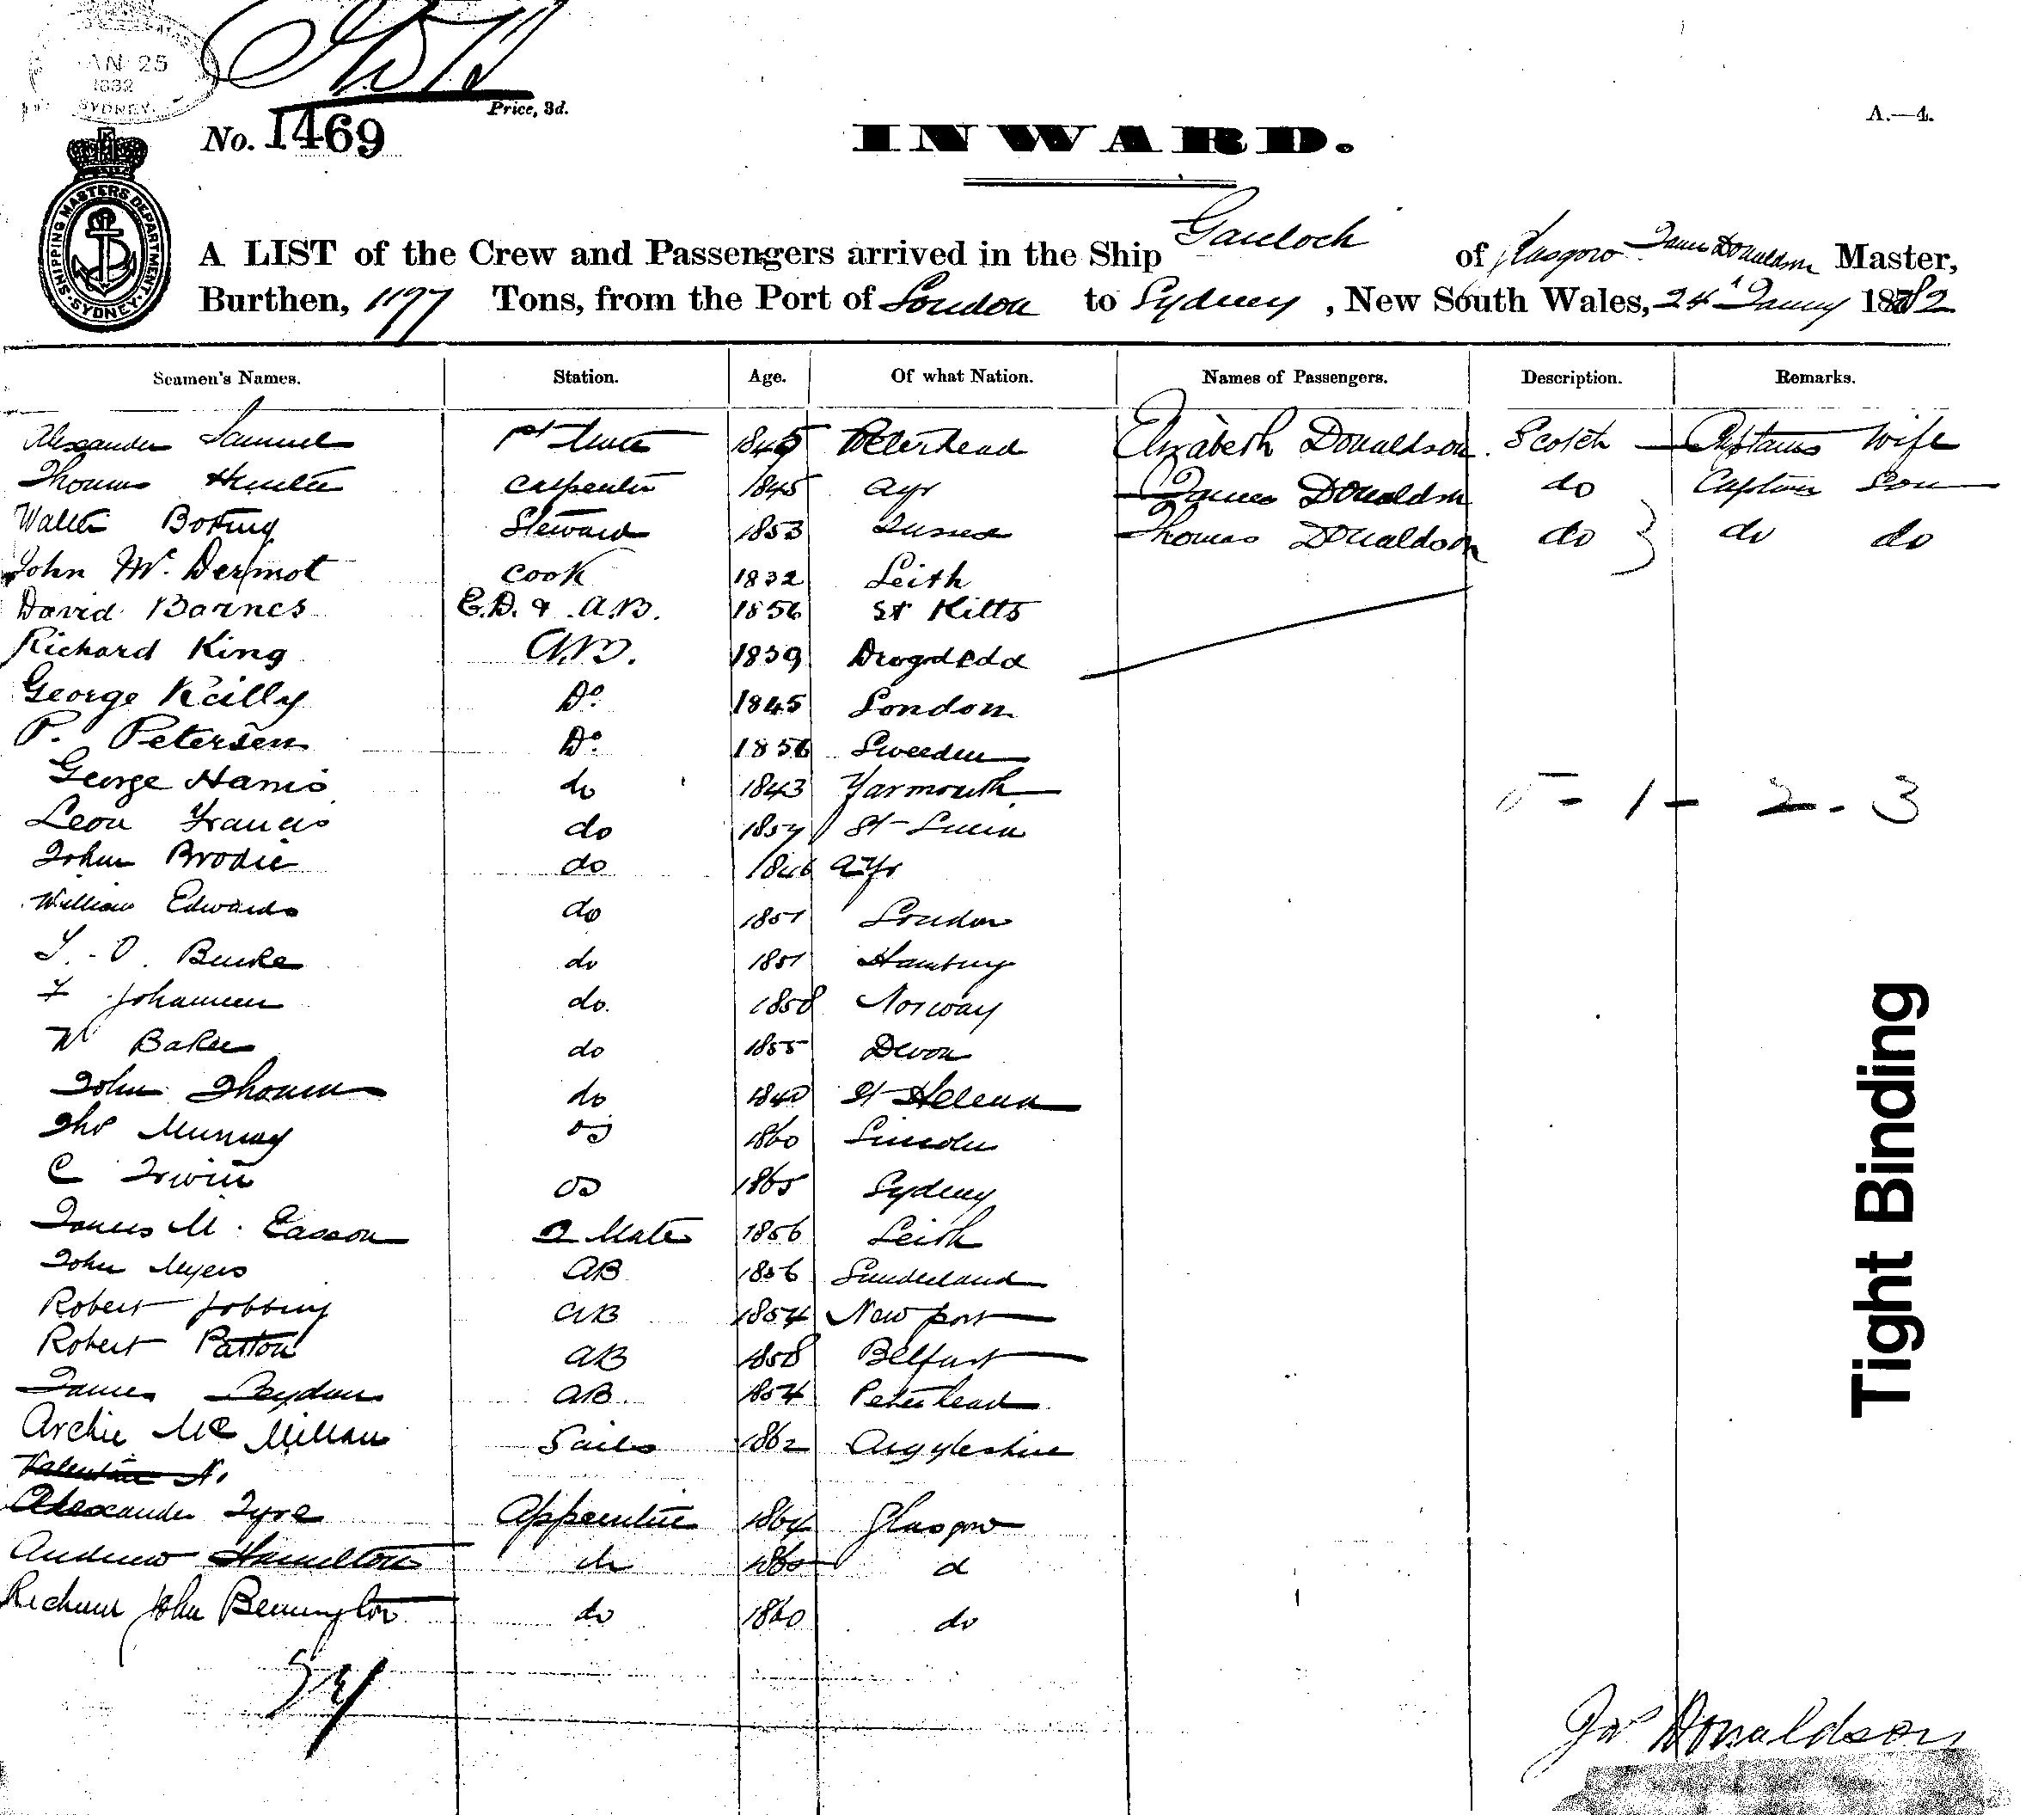 AN 25
1882
SYDNEY.
Price, 3d.
No. 1469
INWARD.
A.—4.
SHIPPING MASTERS DEPARTMENT. SYDNEY.
A LIST of the Crew and Passengers arrived in the Ship Gareloch of Glasgow James Donaldson Master,
Burthen, 1197 Tons, from the Port of London to Sydney, New South Wales, 24 January 1882
Seamen's Names. Station. Age. Of what Nation. Names of Passengers. Description. Remarks.
Alexander Samuel 1st Mate 1845 Peterhead Elizabeth Donaldson Scotch Captains Wife
Thomas Hunter Carpenter 1845 Ayr James Donaldson do Captains Son
Walter Steward 1853 Sussex Thomas Donaldson do do do
John Mc. Dermot Cook 1832 Leith
David Barnes A.B. 1856 St Kitts
Richard King A.B. 1839 Drogdedd
George Reilly Do. 1845 London
P. Petersen Do. 1856 Sweeden
George Harris do 1843 Yarmouth
Leon Francis do 1857 St Lucia
John Brodie do 1846 Ayr
William Edwards do 1851 London
do 1851 Hamburg
do. 1858 Norway
W Baker do 1855 Devon
John Thomas do 1840 St Helena
Thos Murray OS 1860 Lincoln
C Irwin OS 1865 Sydney
James M. Easson 2 Mate 1856 Leith
John Myers AB 1856 Sunderland
Robert AB 1854 Newport
Robert Patton AB 1858 Belfast
James AB 1854 Peterhead
Archie Mc Millan Sails 1862 Argyleshire
Valentine
Alexander Tyre Apprentice 1864 Glasgow
Andrew Hamilton do
Richard John do 1860 do
1 - 2 - 3
Jas Donaldson
Tight Binding